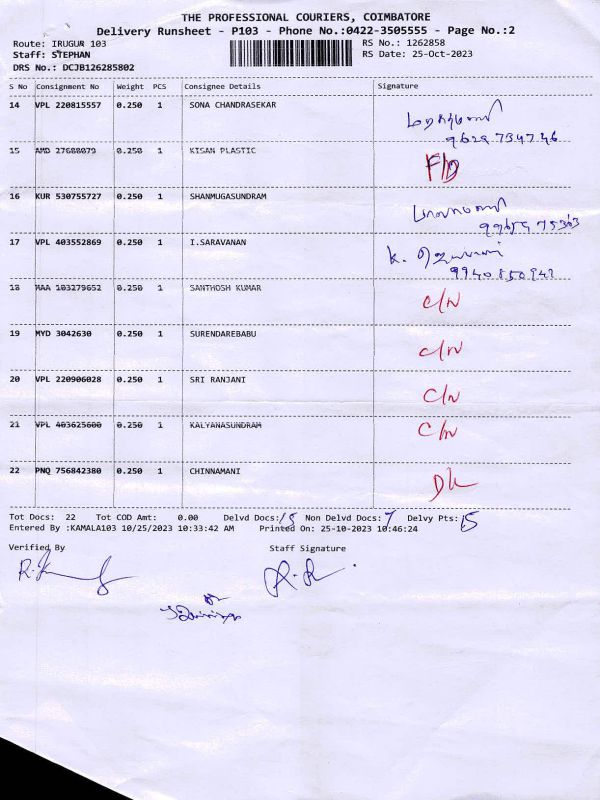 THE PROFESSIONAL COURIERS, COIMBATORE
Delivery Runsheet - P103 - Phone No.:0422-3505555 - Page No.:2
Route: IRUGUR 103 RS No.: 1262858
Staff: STEPHAN RS Date: 25-Oct-2023
DRS No.: DCJB126285802
S No Consignment No Weight PCS Consignee Details Signature
14 VPL 220815557 0.250 1 SONA CHANDRASEKAR
9629 734746
15 AMD 27688079 0.250 1 KISAN PLASTIC
16 KUR 530755727 0.250 1 SHANMUGASUNDRAM
17 VPL 403552869 0.250 1 I.SARAVANAN K.
18 MAA 103279652 0.250 1 SANTHOSH KUMAR C/N
19 MYD 3042630 0.250 1 SURENDAREBABU C/N
20 VPL 220906028 0.250 1 SRI RANJANI C/N
21 VPL 403625600 0.250 1 KALYANASUNDRAM C/N
22 PNQ 756842380 0.250 1 CHINNAMANI DL
Tot Docs: 22 Tot COD Amt: 0.00 Delvd Docs: 15 Non Delvd Docs: 7 Delvy Pts: 15
Entered By :KAMALA103 10/25/2023 10:33:42 AM Printed On: 25-10-2023 10:46:24
Verified By Staff Signature